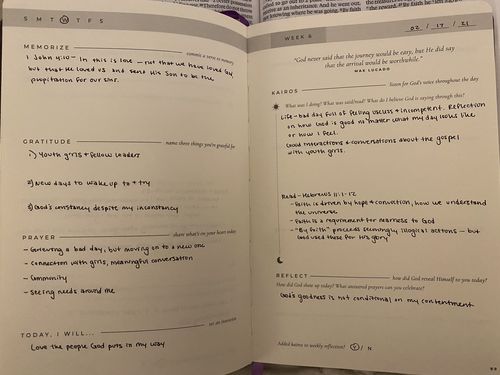 S M T W T F S
MEMORIZE
commit a verse to memory
1 John 4:10 - In this is love - not that we have loved God
but that He loved us and send His Son to be the
propitiation for our sins.
GRATITUDE
name three things you're grateful for
1) Youth girls + fellow leaders
2) New days to wake up to + try
3) God's constancy despite my inconstancy
PRAYER
share what's on your heart today
- Grieving a bad day, but moving on to a new one
- connection with girls, meaningful conversation
- Community
- Seeing needs around me
TODAY, I WILL...
set an intention
Love the people God puts in my way
WEEK 6
02 / 17 / 21
"God never said that the journey would be easy, but He did say
that the arrival would be worthwhile."
MAX LUCADO
KAIROS
listen for God's voice throughout the day
What was I doing? What was said/read? What do I believe God is saying through this?
Life - bad day full of feeling useless + incompetent. Reflection
on how God is good no matter what my day looks like
or how I feel.
Good interactions + conversations about the gospel
with youth girls.
Read - Hebrews 11:1-12
- Faith is driven by hope + conviction, how we understand
the universe
- Faith is a requirement for nearness to God
- "By faith" proceeds seemingly illogical actions - but
God used these for His glory
REFLECT
how did God reveal Himself to you today?
How did God show up today? What answered prayers can you celebrate?
God's goodness is not conditional on my contentment
Added kairos to weekly reflection? Y / N